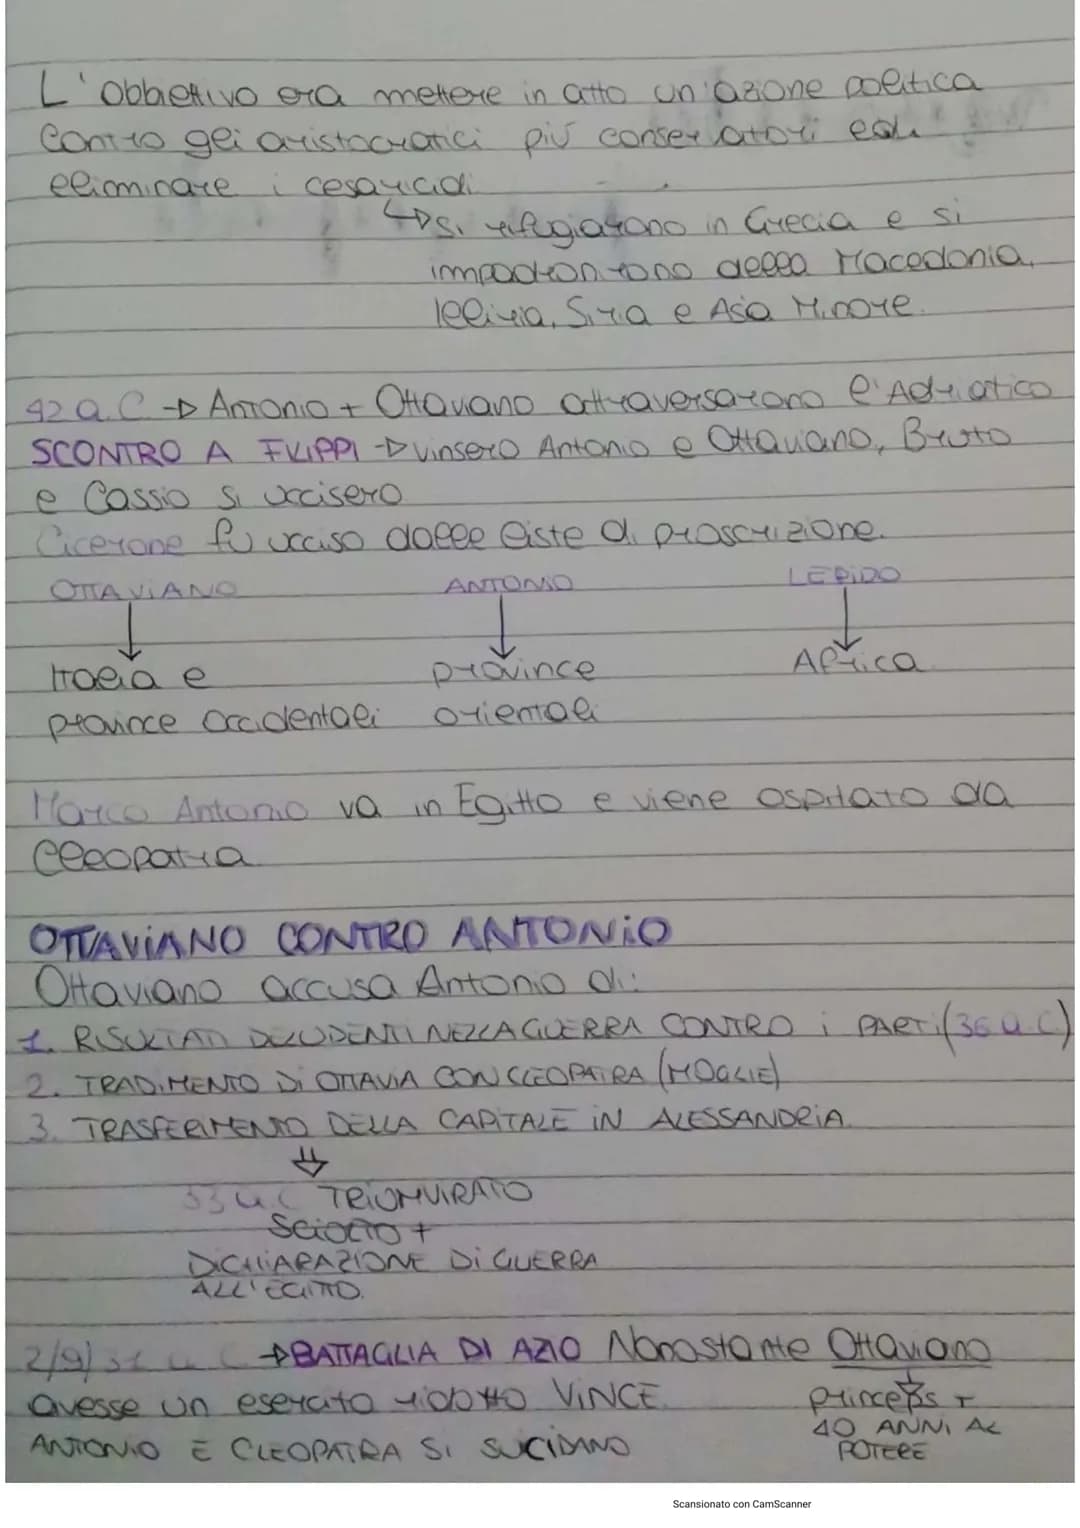 L'obbiettivo era mettere in atto un'azione politica
contro gli aristocratici più conservatori ed
eliminare i cesaricidi
↳ si rifugiarono in Grecia e si
impadronirono della Macedonia,
Illiria, Siria e Asia Minore.
42 a.C → Antonio + Ottaviano attraversarono l'Adriatico
SCONTRO A FILIPPI → vinsero Antonio e Ottaviano, Bruto
e Cassio si uccisero
Cicerone fu ucciso dalle liste di proscrizione.
OTTAVIANO ANTONIO LEPIDO
↓ ↓ ↓
Italia e province Africa
province occidentali orientali
Marco Antonio va in Egitto e viene ospitato da
Cleopatra
OTTAVIANO CONTRO ANTONIO
Ottaviano accusa Antonio di:
1. RISULTATI DELUDENTI NELLA GUERRA CONTRO i PARTI (36 a.C)
2. TRADIMENTO Di OTTAVIA CON CLEOPATRA (MOGLIE)
3. TRASFERIMENTO DELLA CAPITALE iN ALESSANDRIA.
⇓
33 a.C TRiUMVIRATO
SCiOLTO +
DICHIARAZIONE Di GUERRA
ALL'EGITTO.
2/9/31 a.C → BATTAGLIA DI AZIO Nonostante Ottaviano
avesse un esercito ridotto VINCE. princeps +
ANTONIO E CLEOPATRA SI SUCIDANO 40 ANNI AL
POTERE
Scansionato con CamScanner